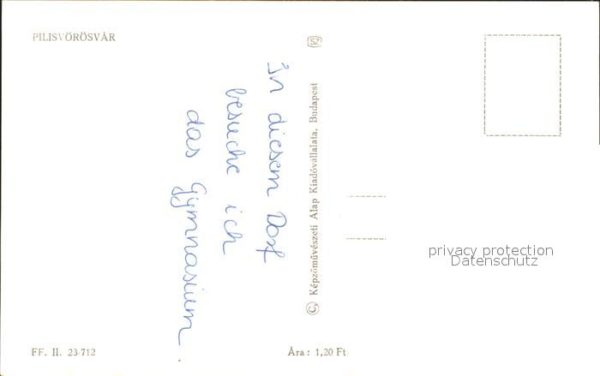 PILISVÖRÖSVÁR
In diesem Dorf
besuche ich
das Gymnasium.
© Képzőművészeti Alap Kiadóvállalata, Budapest
privacy protection
Datenschutz
FF. II. 23-712
Ára: 1,20 Ft